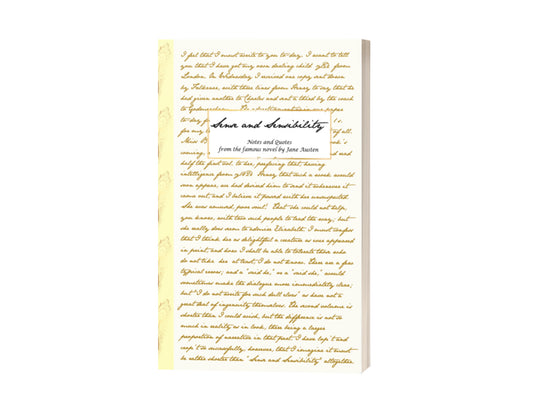 I feel that I must write to you to-day. I want to tell
you that I have got my own darling child from
London. On Wednesday I received one copy sent down
by Falkener, with three lines from Henry to say that he
had given another to Charles and sent a third by the coach
to Godmersham.
to-day
for my
of all.
Miss B
coming,
and
half the first vol. to her, prefacing that, having
intelligence from Henry that such a work would
soon appear, we had desired him to send it whenever it
came out, and I believe it passed with her unsuspected.
She was amused, poor soul! That she could not help,
you know, with two such people to lead the way, but
she really does seem to admire Elizabeth. I must confess
that I think her as delightful a creature as ever appeared
in print, and how I shall be able to tolerate those who
do not like her at least, I do not know. There are a few
typical errors; and a "said he," or a "said she," would
sometimes make the dialogue more immediately clear;
but "I do not write for such dull elves" as have not a
great deal of ingenuity themselves. The second volume is
shorter than I could wish, but the difference is not so
much in reality as in look, there being a larger
proportion of narrative in that part. I have lop't and
crop't so successfully, however, that I imagine it must
be rather shorter than "Sense and Sensibility" altogether.
Sense and Sensibility
Notes and Quotes
from the famous novel by Jane Austen